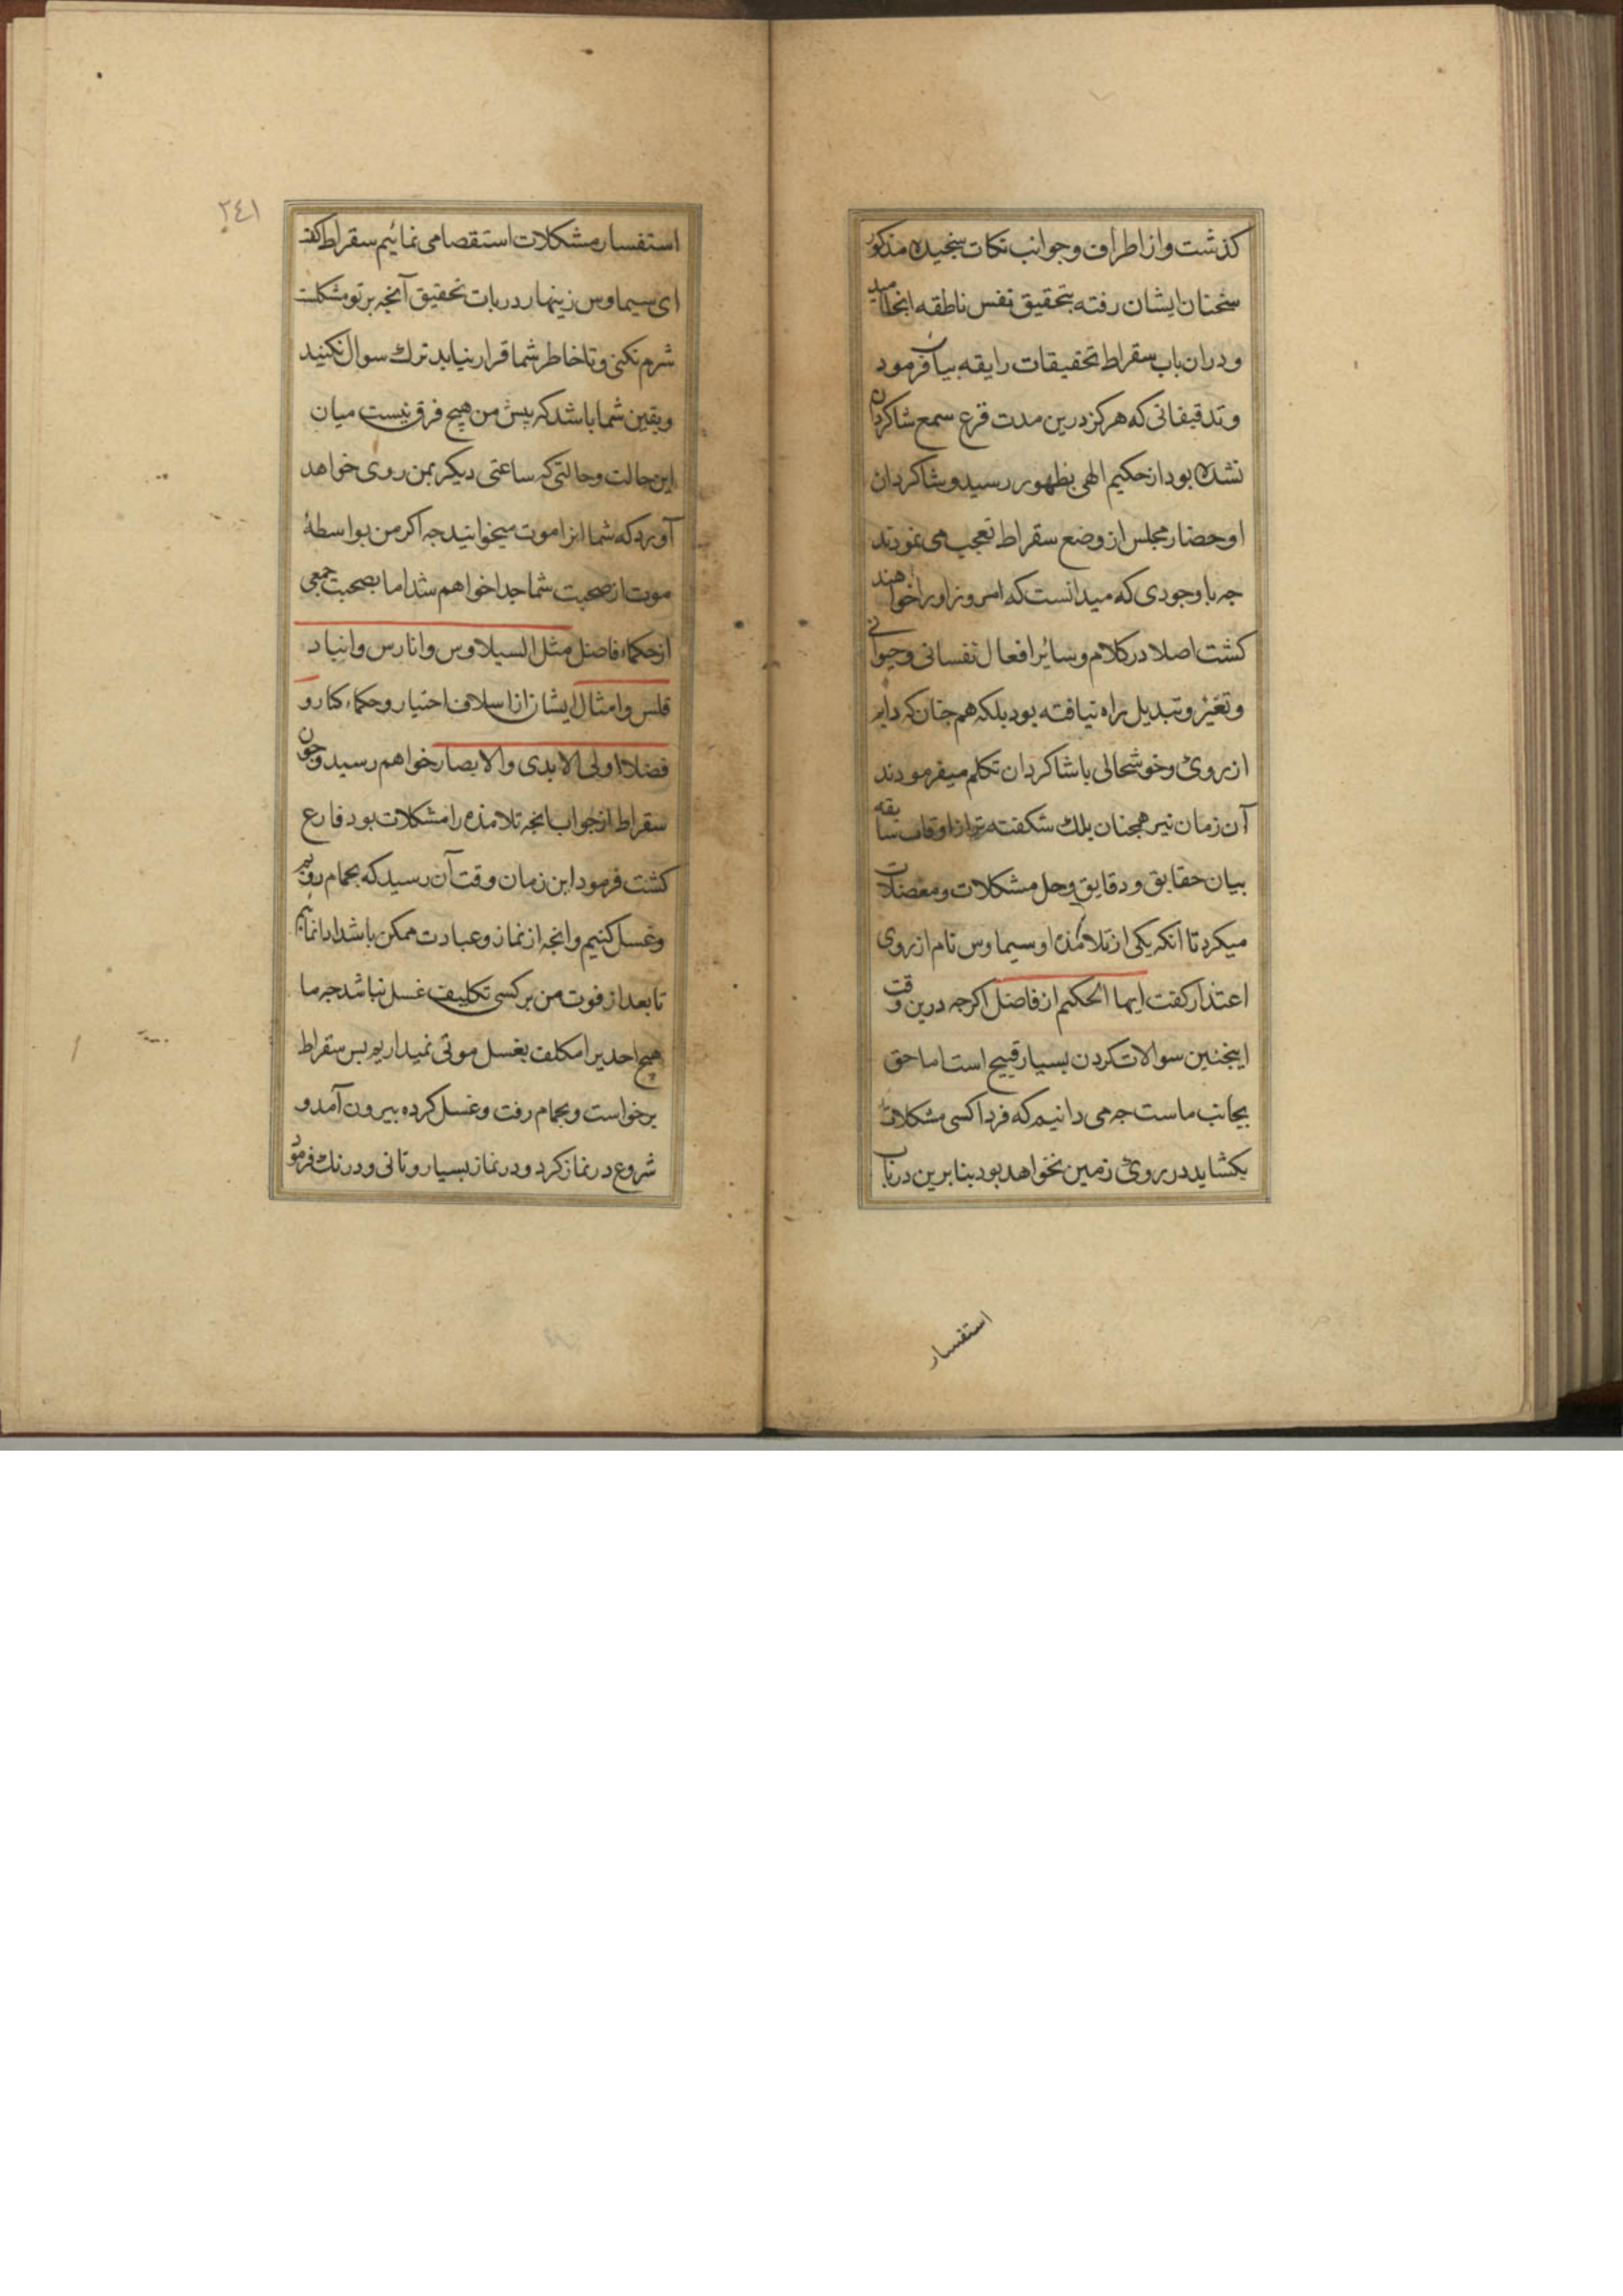 كذشت واز اطراف وجوانب نكات سنجيده مذكور
سخنان ايشان رفته بتحقيق نفس ناطقه انجاميد
ودران باب سقراط تحقيقات رايقه بيان فرمود
وتدقيقاتى كه هركز درين مدت قرع سمع شاكردان
نشده بود از حكيم الهى بظهور رسيد و شاكردان
او حضار مجلس از وضع سقراط تعجب مى نمودند
جه با وجودى كه ميدانست كه امروز اورا خواهند
كشت اصلا در كلام وسائر افعال نفسانى وحيوانى
وتغير وتبديل راه نيافته بود بلكه هم جنان كه دايم
از روى وخوشحالى با شاكردان تكلم ميفرمودند
آن زمان نيز همجنان بلك شكفته تر از اوقات سابقه
بيان حقايق ودقايق وحل مشكلات ومعضلات
ميكرد تا انكه يكى از تلامذه او سيماوس نام از روى
اعتذار كفت ايها الحكيم از فاضل اكرجه درين وقت
اينجنين سوالات كردن بسيار قبيح است اما حق
بجانب ماست جه مى دانيم كه فردا كسى مشكلات
بكشايد در روى زمين نخواهد بود بنا برين درباب
استفسار
٢٤١
استفسار مشكلات استقصا مى نمائيم سقراط كفت
اى سيماوس زينهار در بات تحقيق آنجه بر تو مشكلست
شرم نكنى و تا خاطر شما قرار نيابد ترك سوال نكنيد
ويقين شما باشد كه پيش من هيچ فرق نيست ميان
اين حالت وحالتى كه ساعتى ديكر بمن روى خواهد
آورد كه شما انرا موت ميخوانيد جه اكر من بواسطهٔ
موت از صحبت شما جدا خواهم شد اما بصحبت جمعى
از حكماء فاضل مثل السيلاوس وانارس وانياد
قلس وامثال ايشان از اسلاف اختيار وحكماء كنار و
فضلاء اولى الابدى والابصار خواهم رسيد وجون
سقراط از جواب انجه تلامذه را مشكلات بود فارع
كشت فرمود اين زمان وقت آن رسيد كه بحمام رويم
وغسل كنيم وانجه از نماز وعبادت ممكن باشد ادا نمايم
تا بعد از فوت من بر كسى تكليف غسل نباشد جه ما
هيچ احديرا مكلف بغسل موتى نميداريم بس سقراط
برخواست وبحمام رفت وغسل كرده بيرون آمد و
شروع در نماز كرد ودر نماز بسيار وتانى ودرنك فرمود